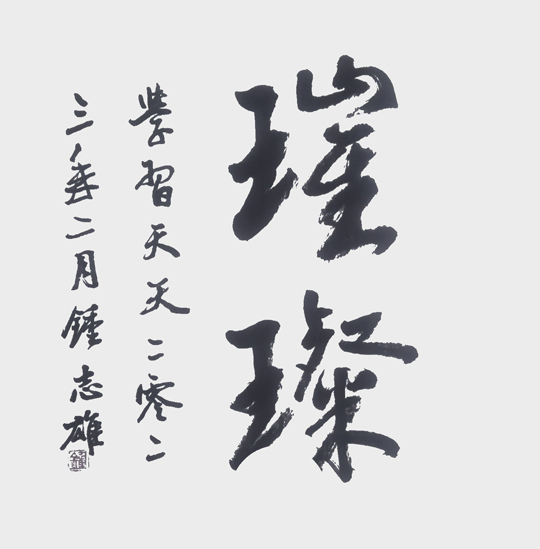 璀璨
學習天天二零二
三年二月鍾志雄